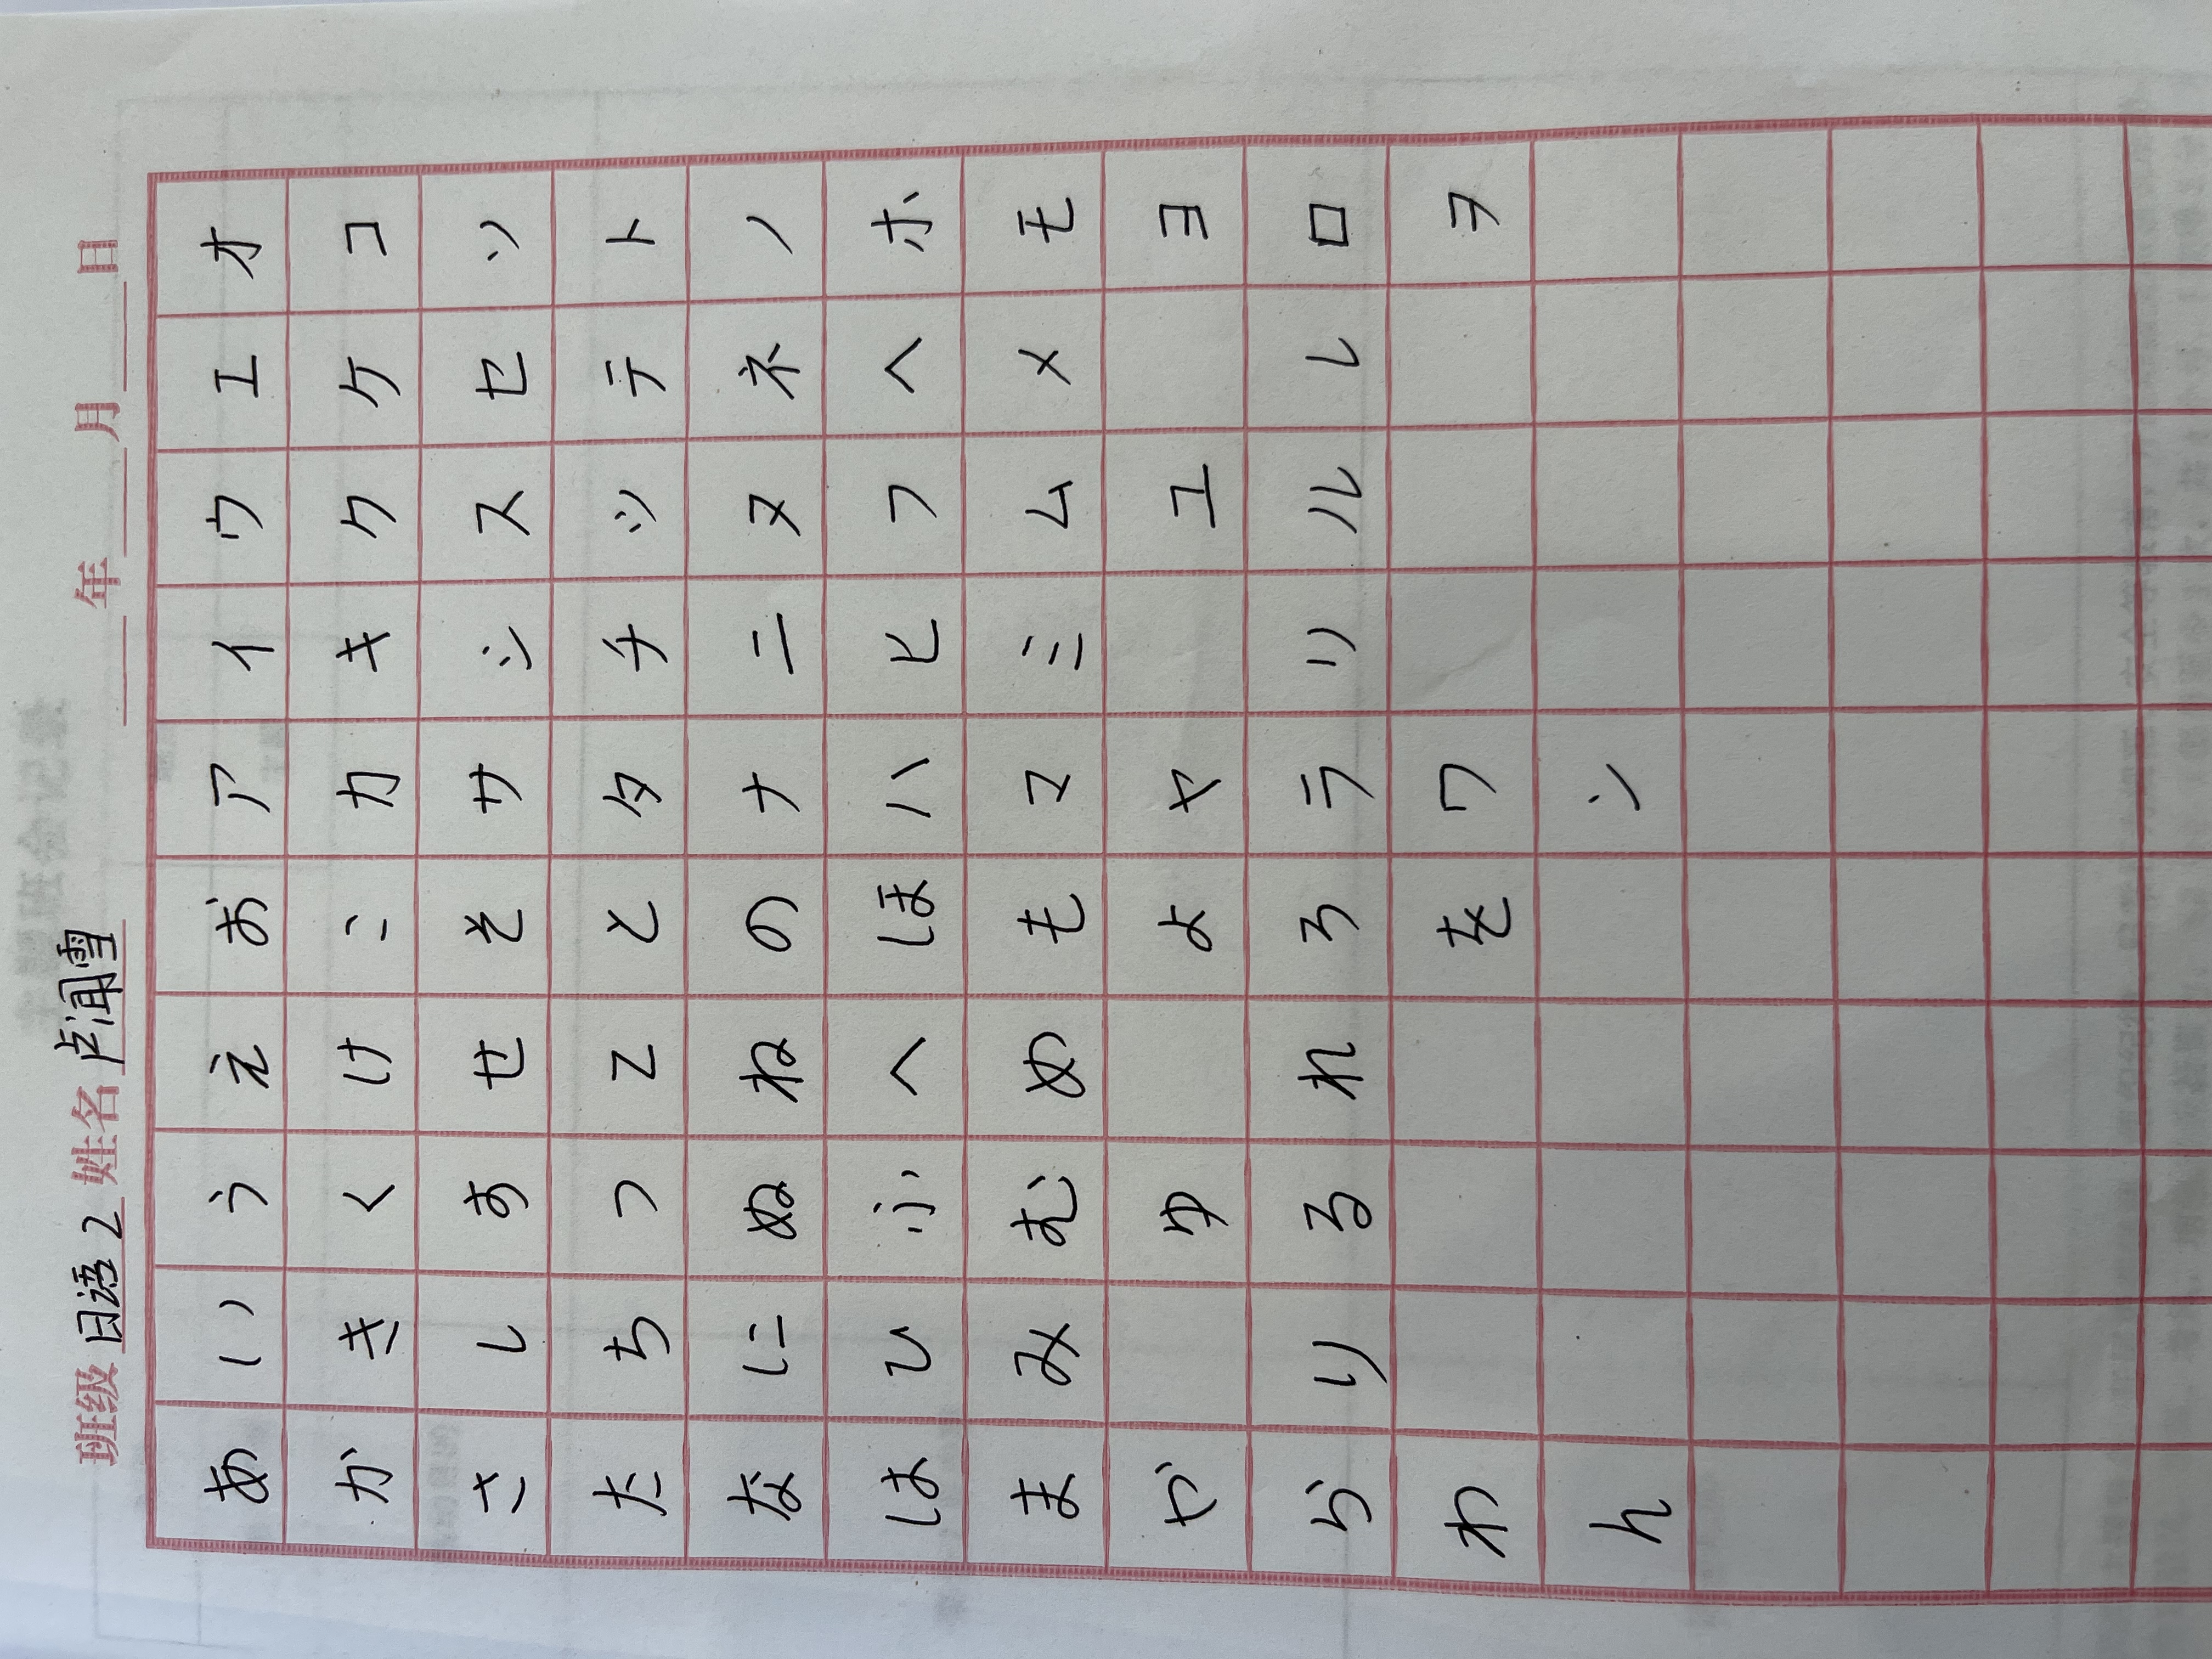 班级 日语2 姓名 卢闻雪 年 月 日
あ い う え お ア イ ウ エ オ
か き く け こ カ キ ク ケ コ
さ し す せ そ サ シ ス セ ソ
た ち つ て と タ チ ツ テ ト
な に ぬ ね の ナ ニ ヌ ネ ノ
は ひ ふ へ ほ ハ ヒ フ ヘ ホ
ま み む め も マ ミ ム メ モ
や ゆ よ ヤ ユ ヨ
ら り る れ ろ ラ リ ル レ ロ
わ を ワ ヲ
ん ン